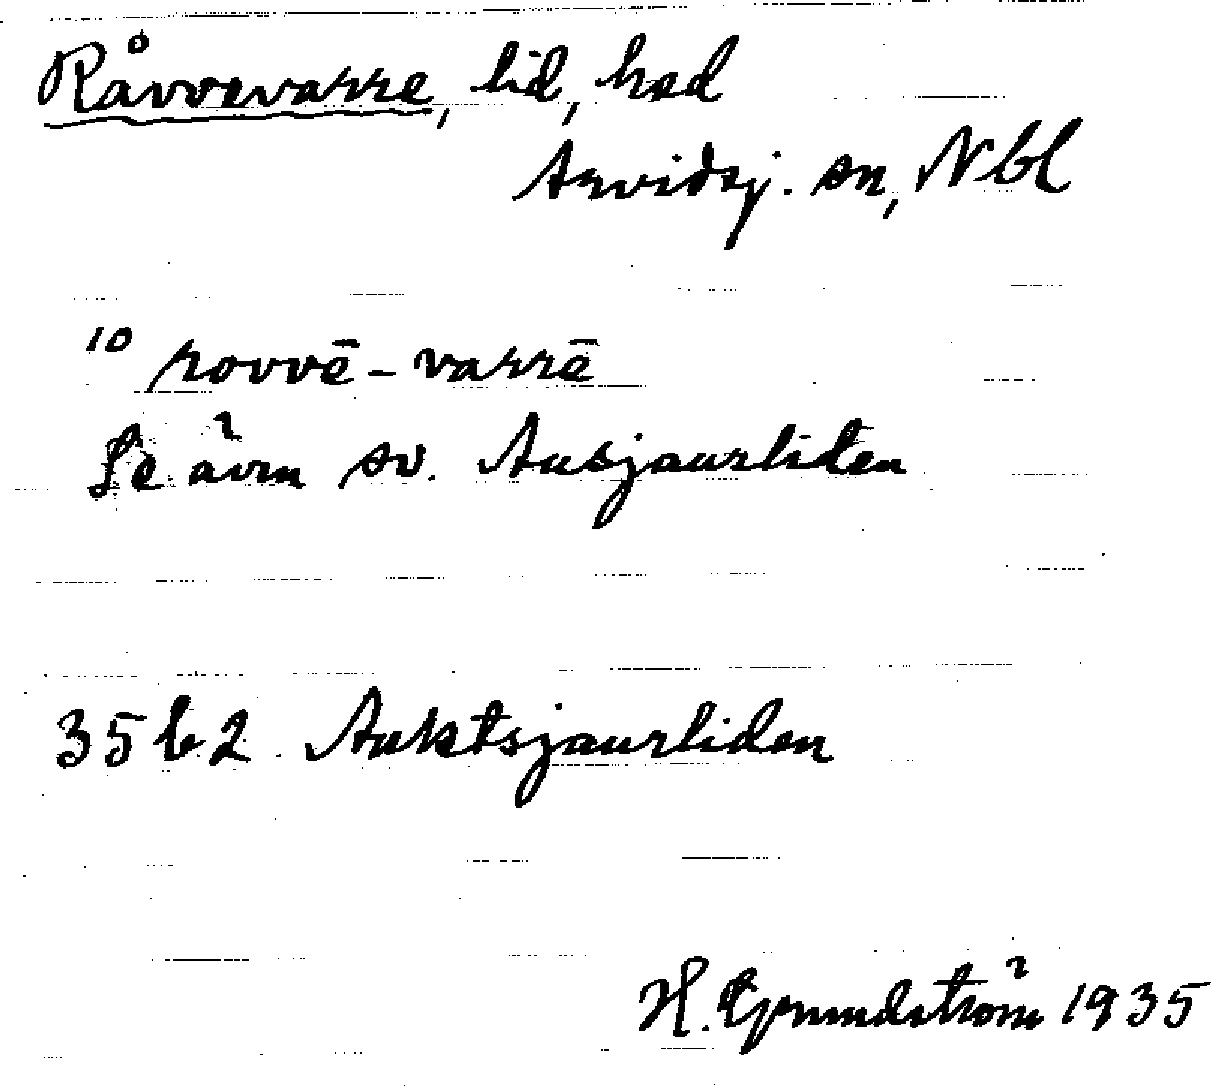 Råvvevarre, lid, hed
Arvidsj. sn, Nbl
10 rovvē-varrē
Se även sv. Ausjaurliden
35 b 2 Auktsjaurliden
H. Grundström 1935